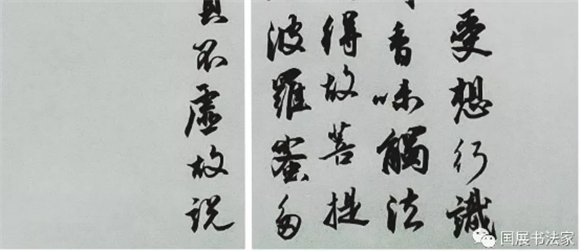 受想行識
香味觸法
得故菩提
波羅蜜多
不虛故说
国展书法家